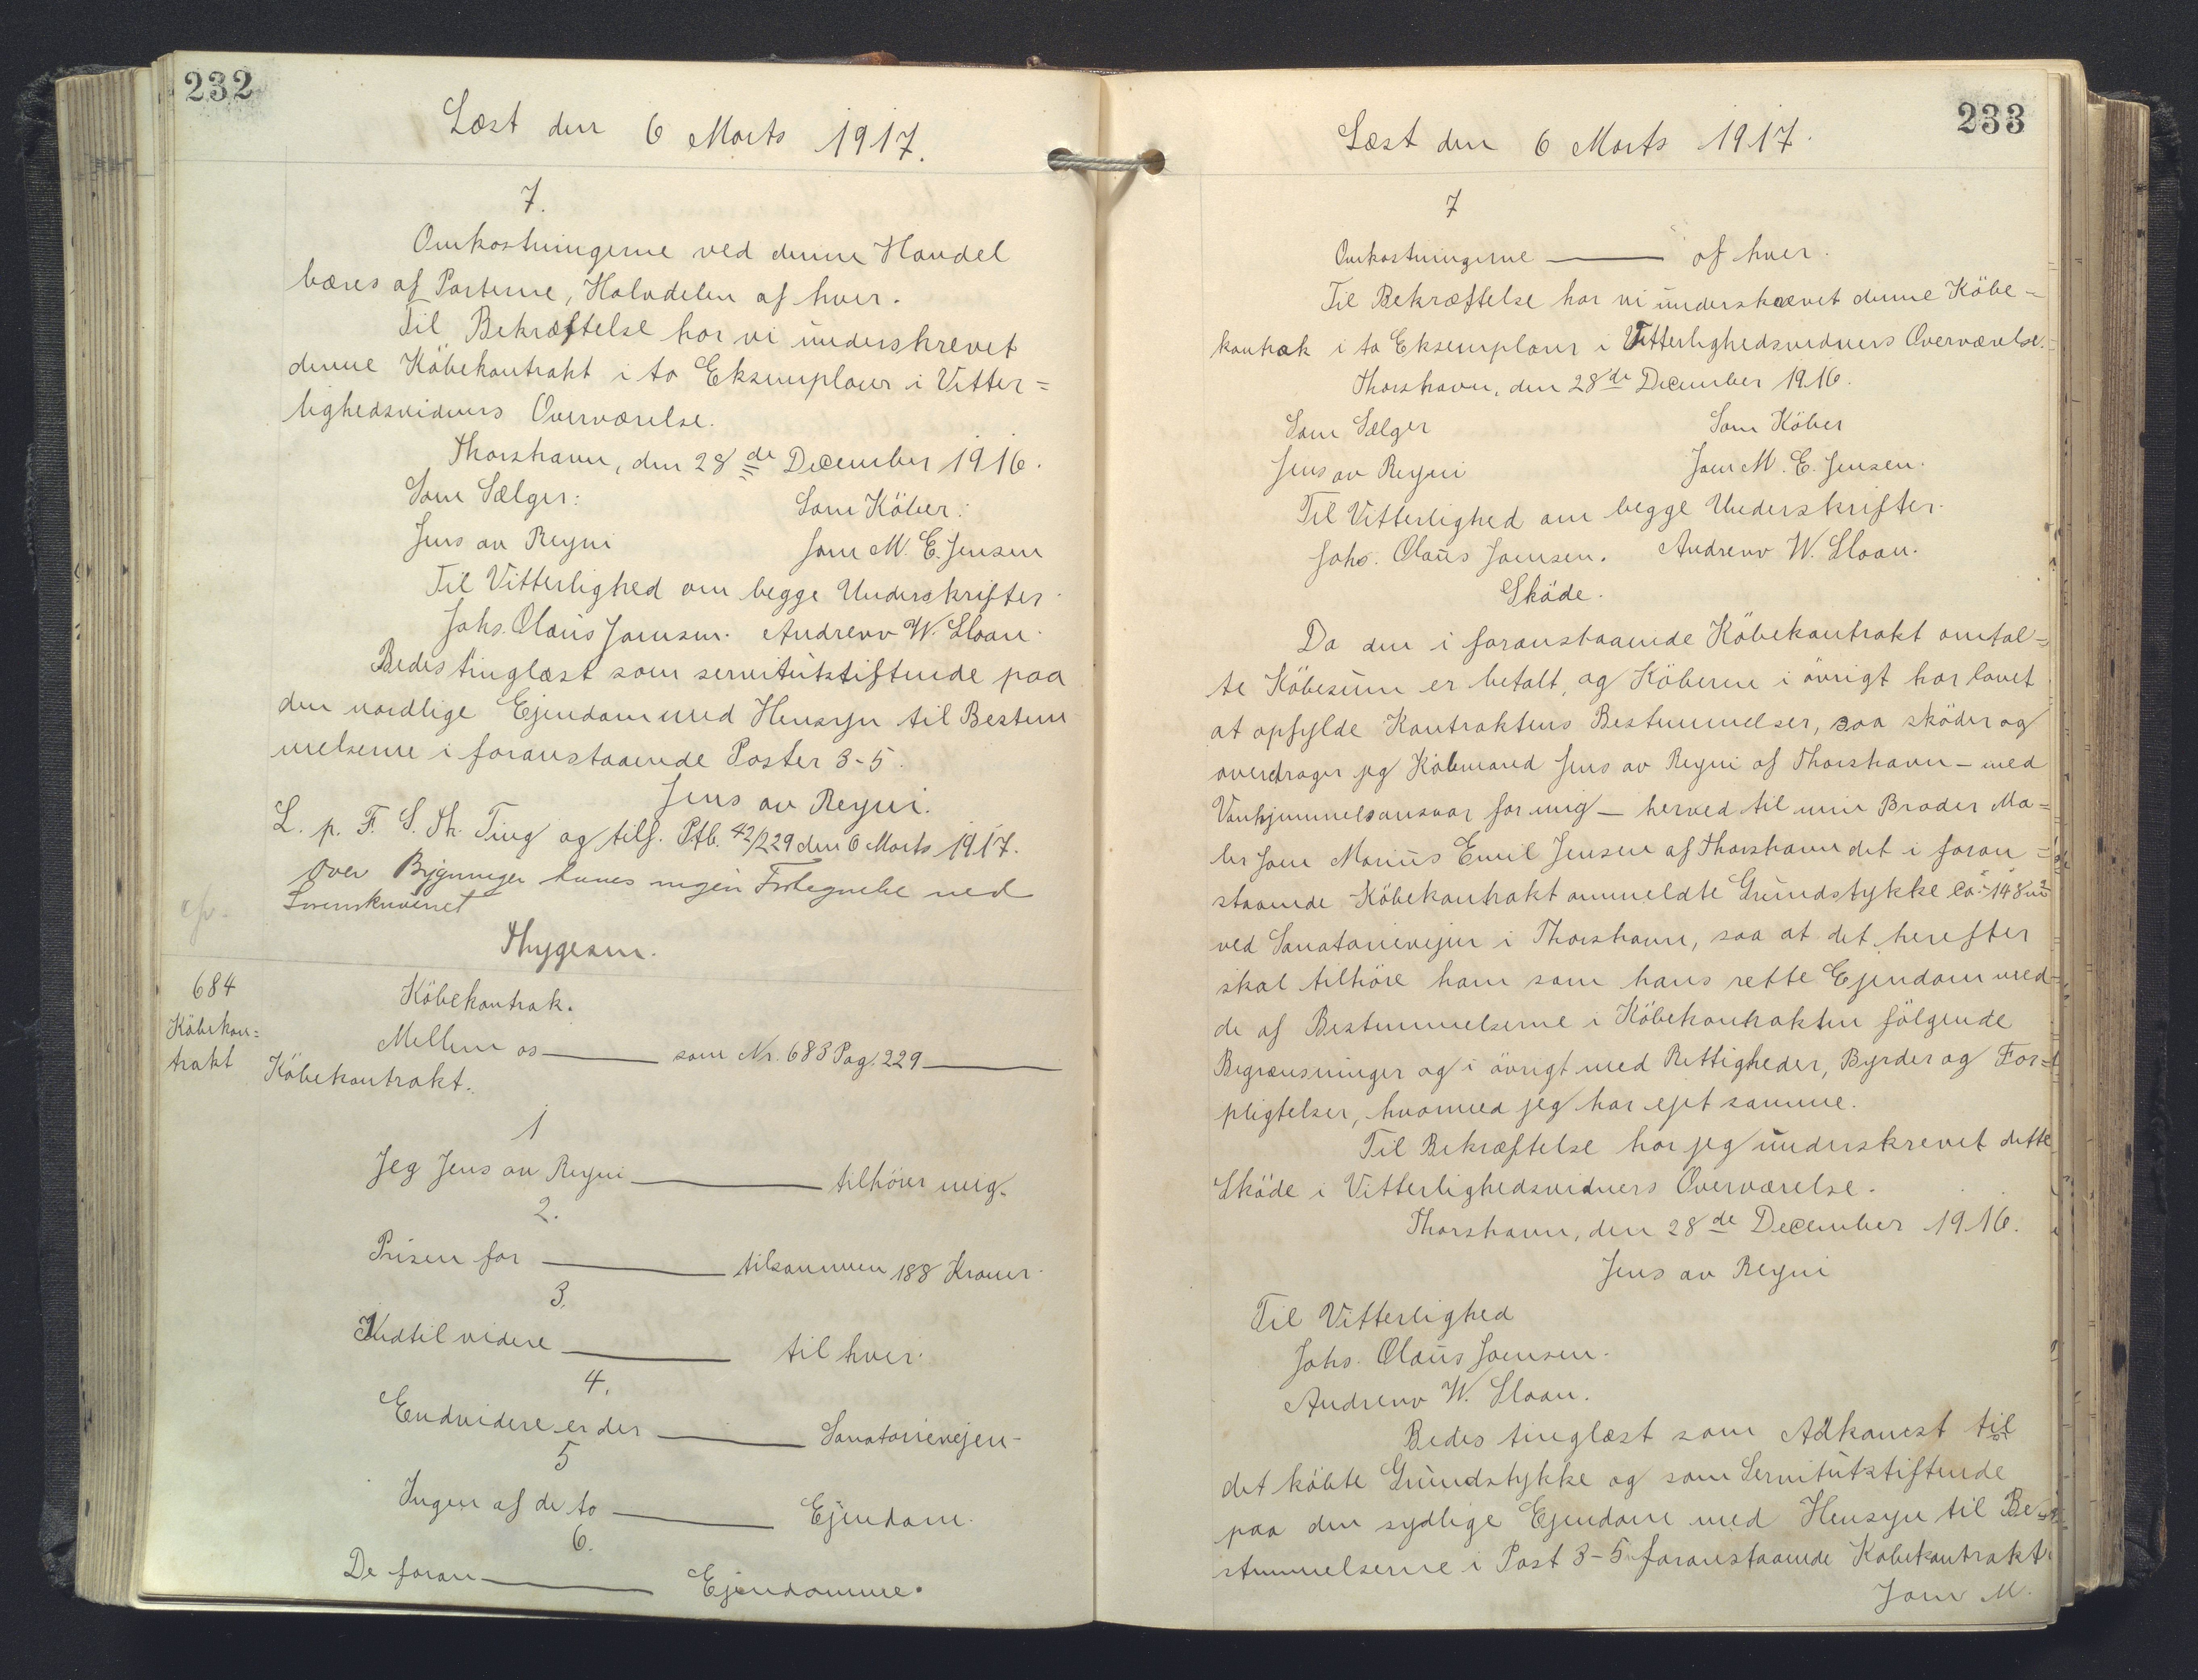 232
Læst den 6 Marts 1917.
7.
Omkostningerne ved denne Handel
bæres af Parterne, Halvdelen af hver.
Til Bekræftelse har vi underskrevet
denne Köbekontrakt i to Eksemplarer i Vitter=
lighedsvidners Overværelse.
Thorshavn, den 28de December 1916.
Som Sælger:
Som Köber:
Jens av Reyni
Joen M. E. Jensen
Til Vitterlighed om begge Underskrifter.
Johs. Olaus Joensen. Andrew W. Sloan.
Bedes tinglæst som servitutstiftende paa
den nordlige Ejendom med Hensyn til Bestem
melserne i foranstaaende Poster 3-5.
Jens av Reyni.
L. p. F. S. Th. Ting og tilf. Ptb. 42/229 den 6 Marts 1917.
Over Bygninger haves ingen Fortegnelse ved
Sorenskriveriet
Thygesen.
684
Köbekon=
trakt
Köbekontrak.
Mellem os — som Nr. 683 Pag. 229 —
Köbekontrakt.
1
Jeg Jens av Reyni — tilhörer mig.
2.
Prisen for — tilsammen 188 Kroner.
3.
Indtil videre — til hver.
4.
Endvidere er der — Sanatorievejen-
5
Ingen af de to — Ejendom.
6.
De foran — Ejendomme.
233
Læst den 6 Marts 1917.
7
Omkostningerne — af hver.
Til Bekræftelse har vi underskrevet denne Köbe=
kontrak i to Eksemplarer i Vitterlighedsvidners Overværelse.
Thorshavn, den 28de December 1916.
Som Sælger
Som Köber
Jens av Reyni
Joen M. E. Jensen.
Til Vitterlighed om begge Underskrifter.
Johs. Olaus Joensen. Andrew W. Sloan.
Sköde.
Da den i foranstaaende Köbekontrakt omtal=
te Köbesum er betalt, og Köberne i övrigt har lovet
at opfylde Kontraktens Bestemmelser, saa sköder og
overdrager jeg Köbmand Jens av Reyni af Thorshavn - med
Vanhjemmelsansvar for mig - herved til min Broder Ma=
ler Joen Marius Emil Jensen af Thorshavn det i foran=
staaende Köbekontrakt ommeldte Grundstykke ca. 148 m²
ved Sanatorievejen i Thorshavn, saa at det herefter
skal tilhöre ham som hans rette Ejendom med
de af Bestemmelserne i Köbekontrakten fölgende
Begrænsninger og i övrigt med Rettigheder, Byrder og For=
pligtelser, hvormed jeg har ejet samme.
Til Bekræftelse har jeg underskrevet dette
Sköde i Vitterlighedsvidners Overværelse.
Thorshavn, den 28de December 1916.
Jens av Reyni
Til Vitterlighed
Johs. Olaus Joensen.
Andrew W. Sloan.
Bedes tinglæst som Adkomst til
det köbte Grundstykke og som Servitutstiftende
paa den sydlige Ejendom med Hensyn til Be=
stemmelserne i Post 3-5 foranstaaende Kobekontrakt.
Joen M.